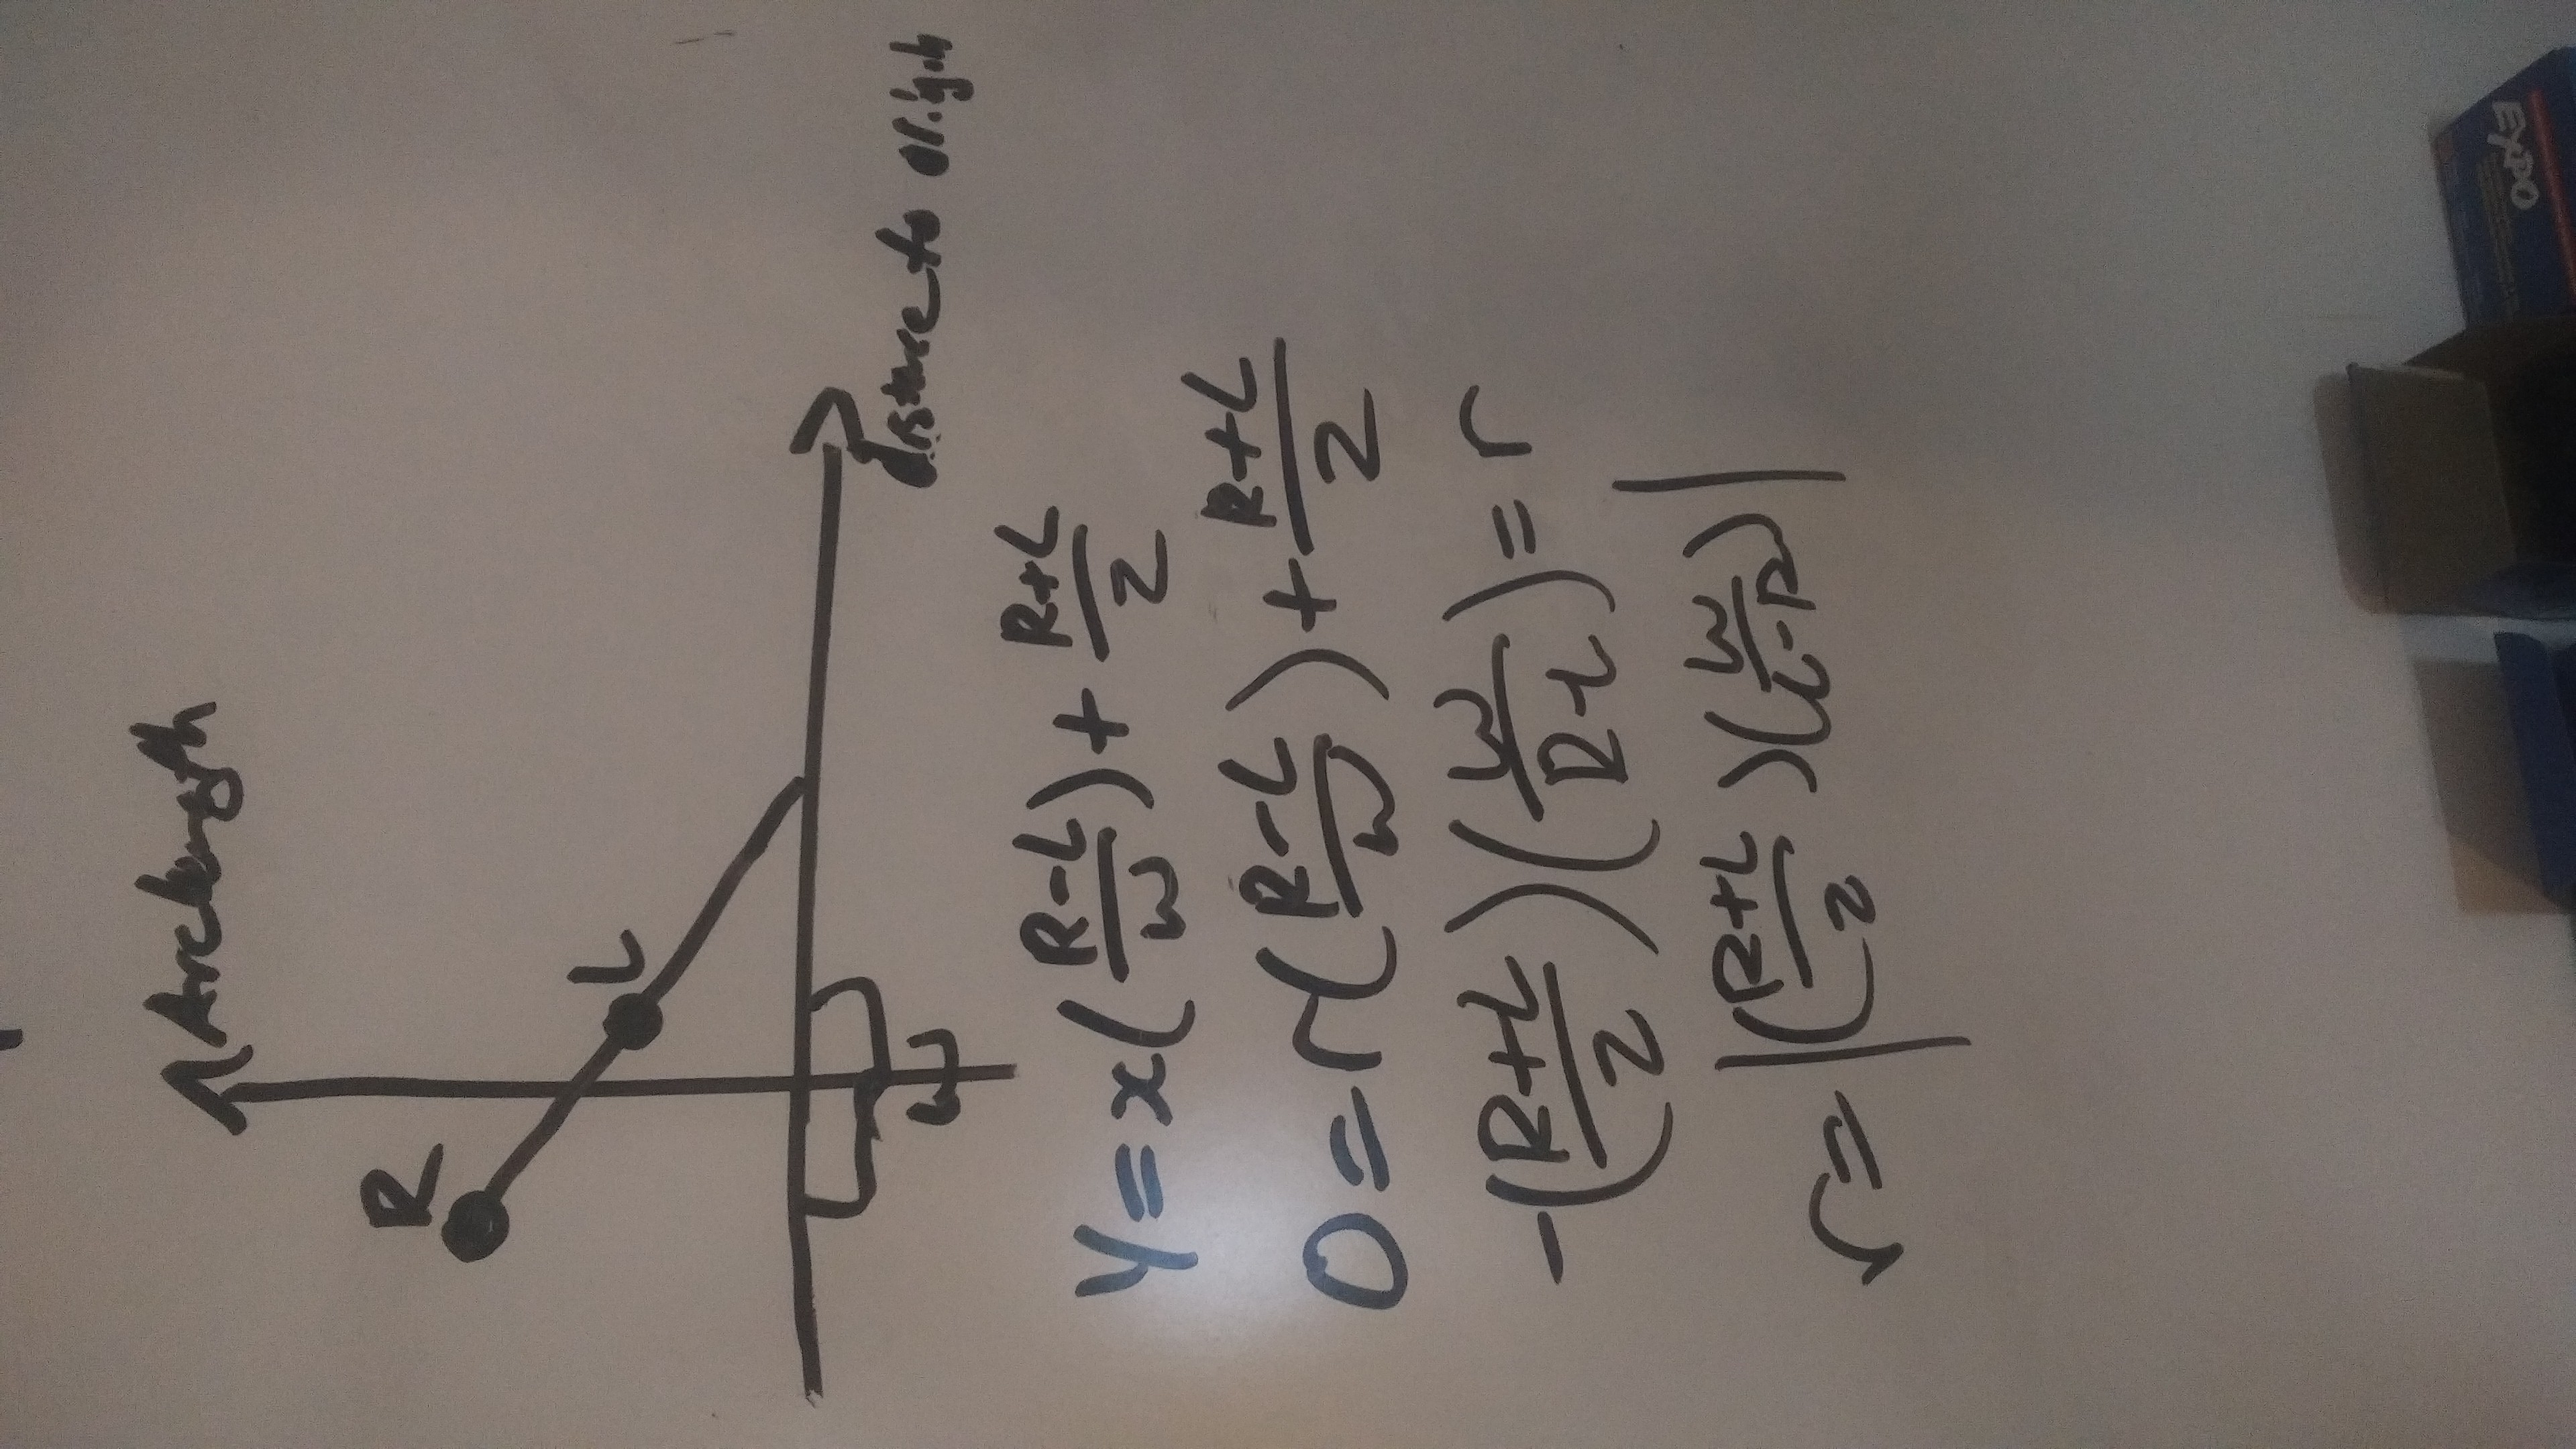 Arclength
R
L
distance to origin
W
Y=x(R-L/W)+R+L/2
0=r(R-L/W)+R+L/2
-(R+L/2)(W/R-L)=r
r=|(R+L/2)(W/L-R)|
EXPO